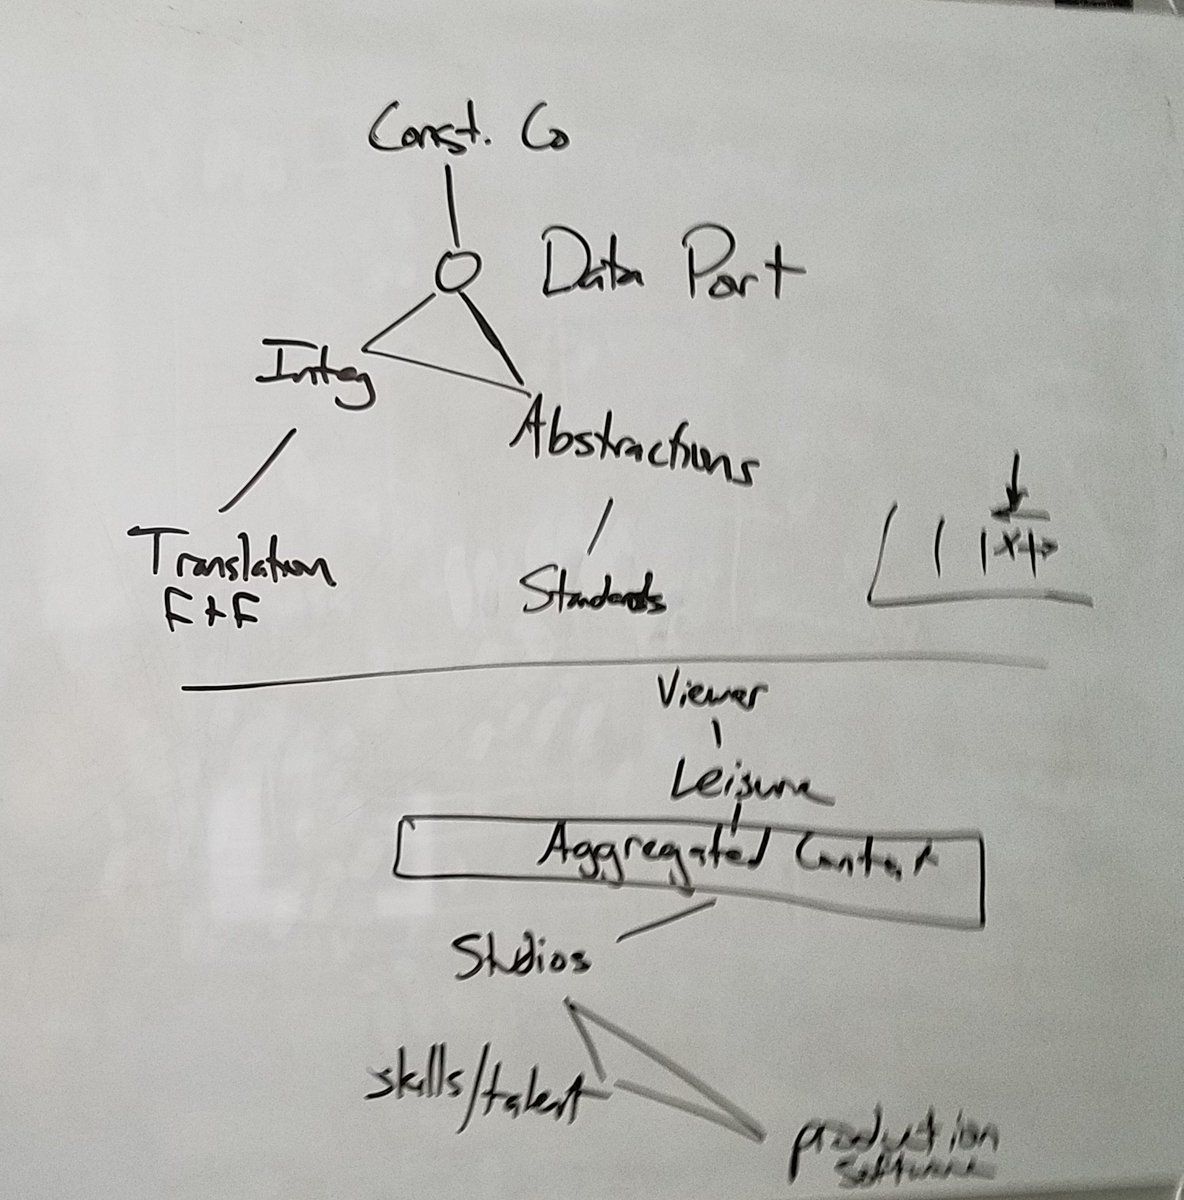 Const. Co
Data Port
Integ
Abstractions
Translation
F + F
Standards
Viewer
Leisure
Aggregated Content
Studios
skills/talent
production
software